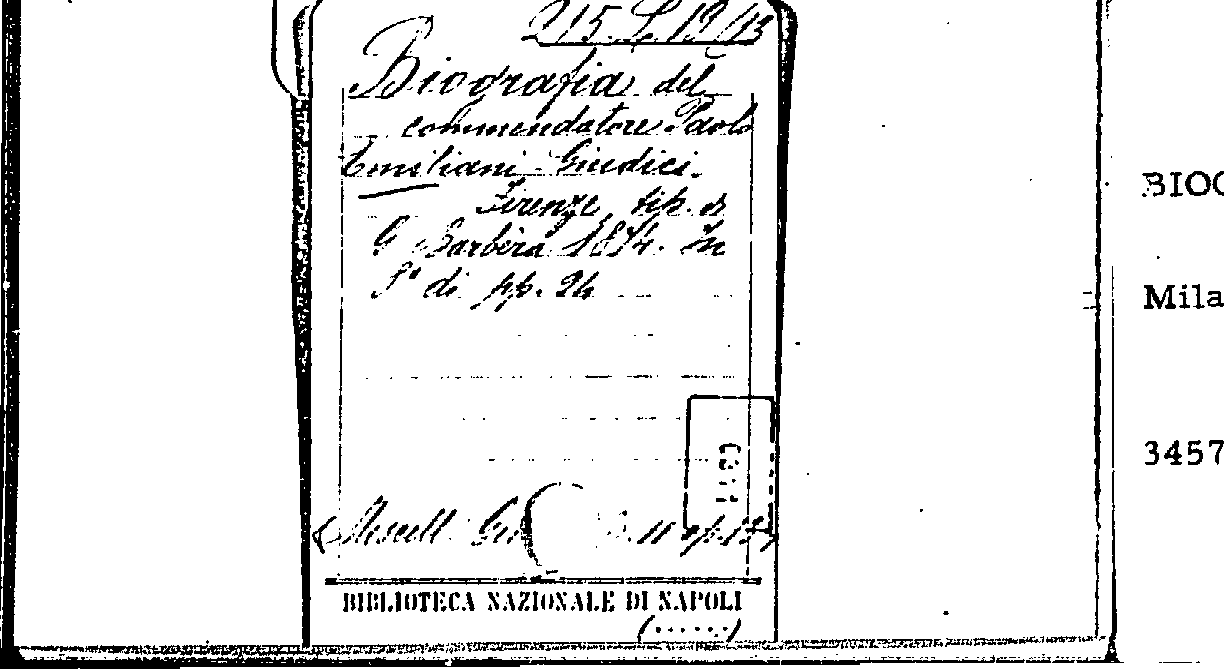 215. L. 19/13
Biografia del
commendatore Paolo
Emiliani Giudici.
Firenze, tip. di
G. Barbèra 1874. In
8° di pp. 24
(Miscell.
BIBLIOTECA NAZIONALE DI NAPOLI
(......)
BIOG
Mila
3457